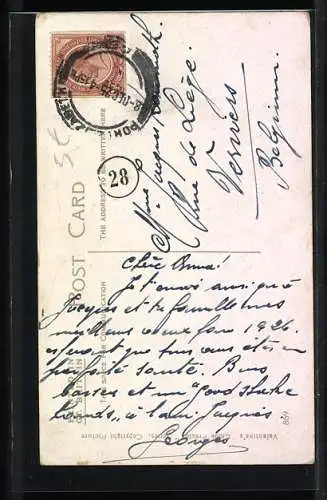 POST CARD
THE ADDRESS TO BE WRITTEN HERE
28
Mme Jacques
Rue de Liège
Verviers
Belgium.
Chère Anna!
Je t'envoi ainsi qu'à
Jacques et ta famille mes
meilleurs voeux pour 1926.
espérant que tous vous êtes en
parfaite santé. Bons
baisers et un "good shake
hands" à l'ami Jacques
Georges
THIS SPACE FOR COMMUNICATION
Valentine's
Copyright Picture